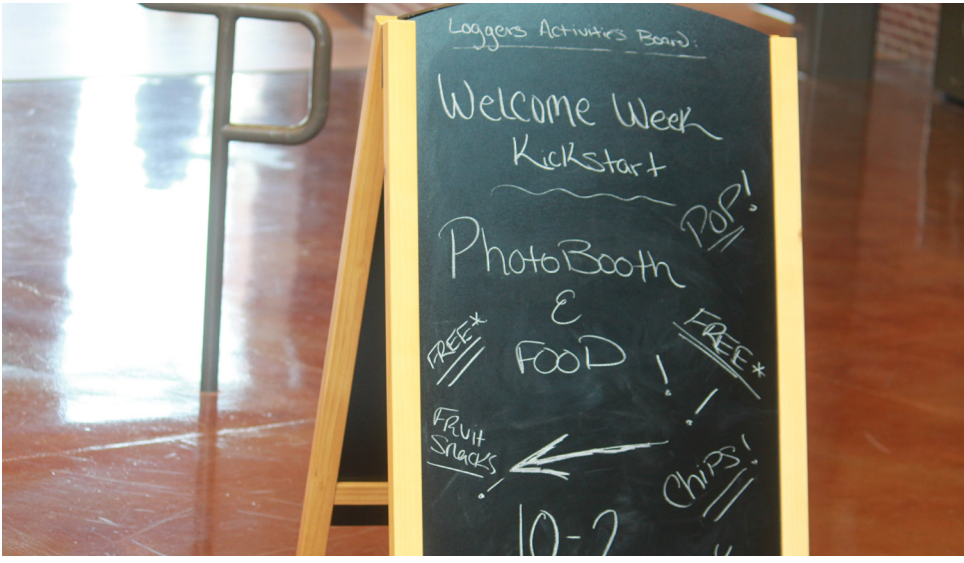 Loggers Activities Board:
Welcome Week
Kickstart
POP!
PhotoBooth
&
FOOD
FREE*
FREE*
!
!
Fruit
Snacks
!
Chips!
10-2